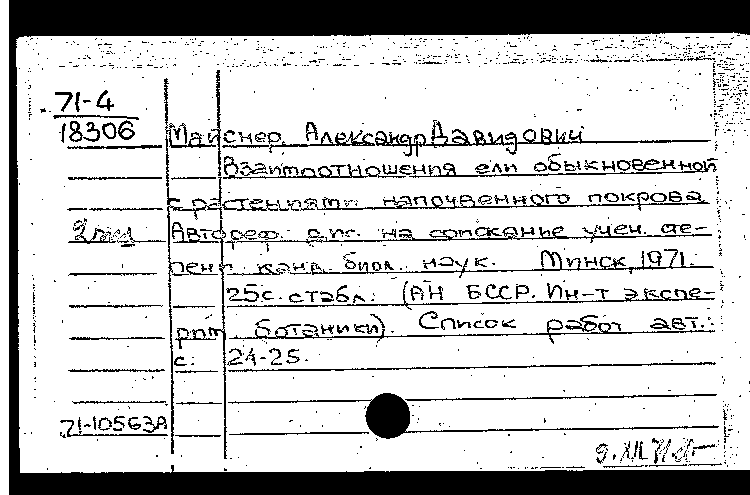 71-4
18306 Майснер, Александр Давидович
Взаимоотношения ели обыкновенной
с растениями напочвенного покрова
Автореф. дис. на соискание учен. сте-
пени канд. биол. наук. Минск, 1971.
25с. с табл. (АН БССР. Ин-т экспе-
рим ботаники). Список работ авт.:
с. 24-25.
71-10563А